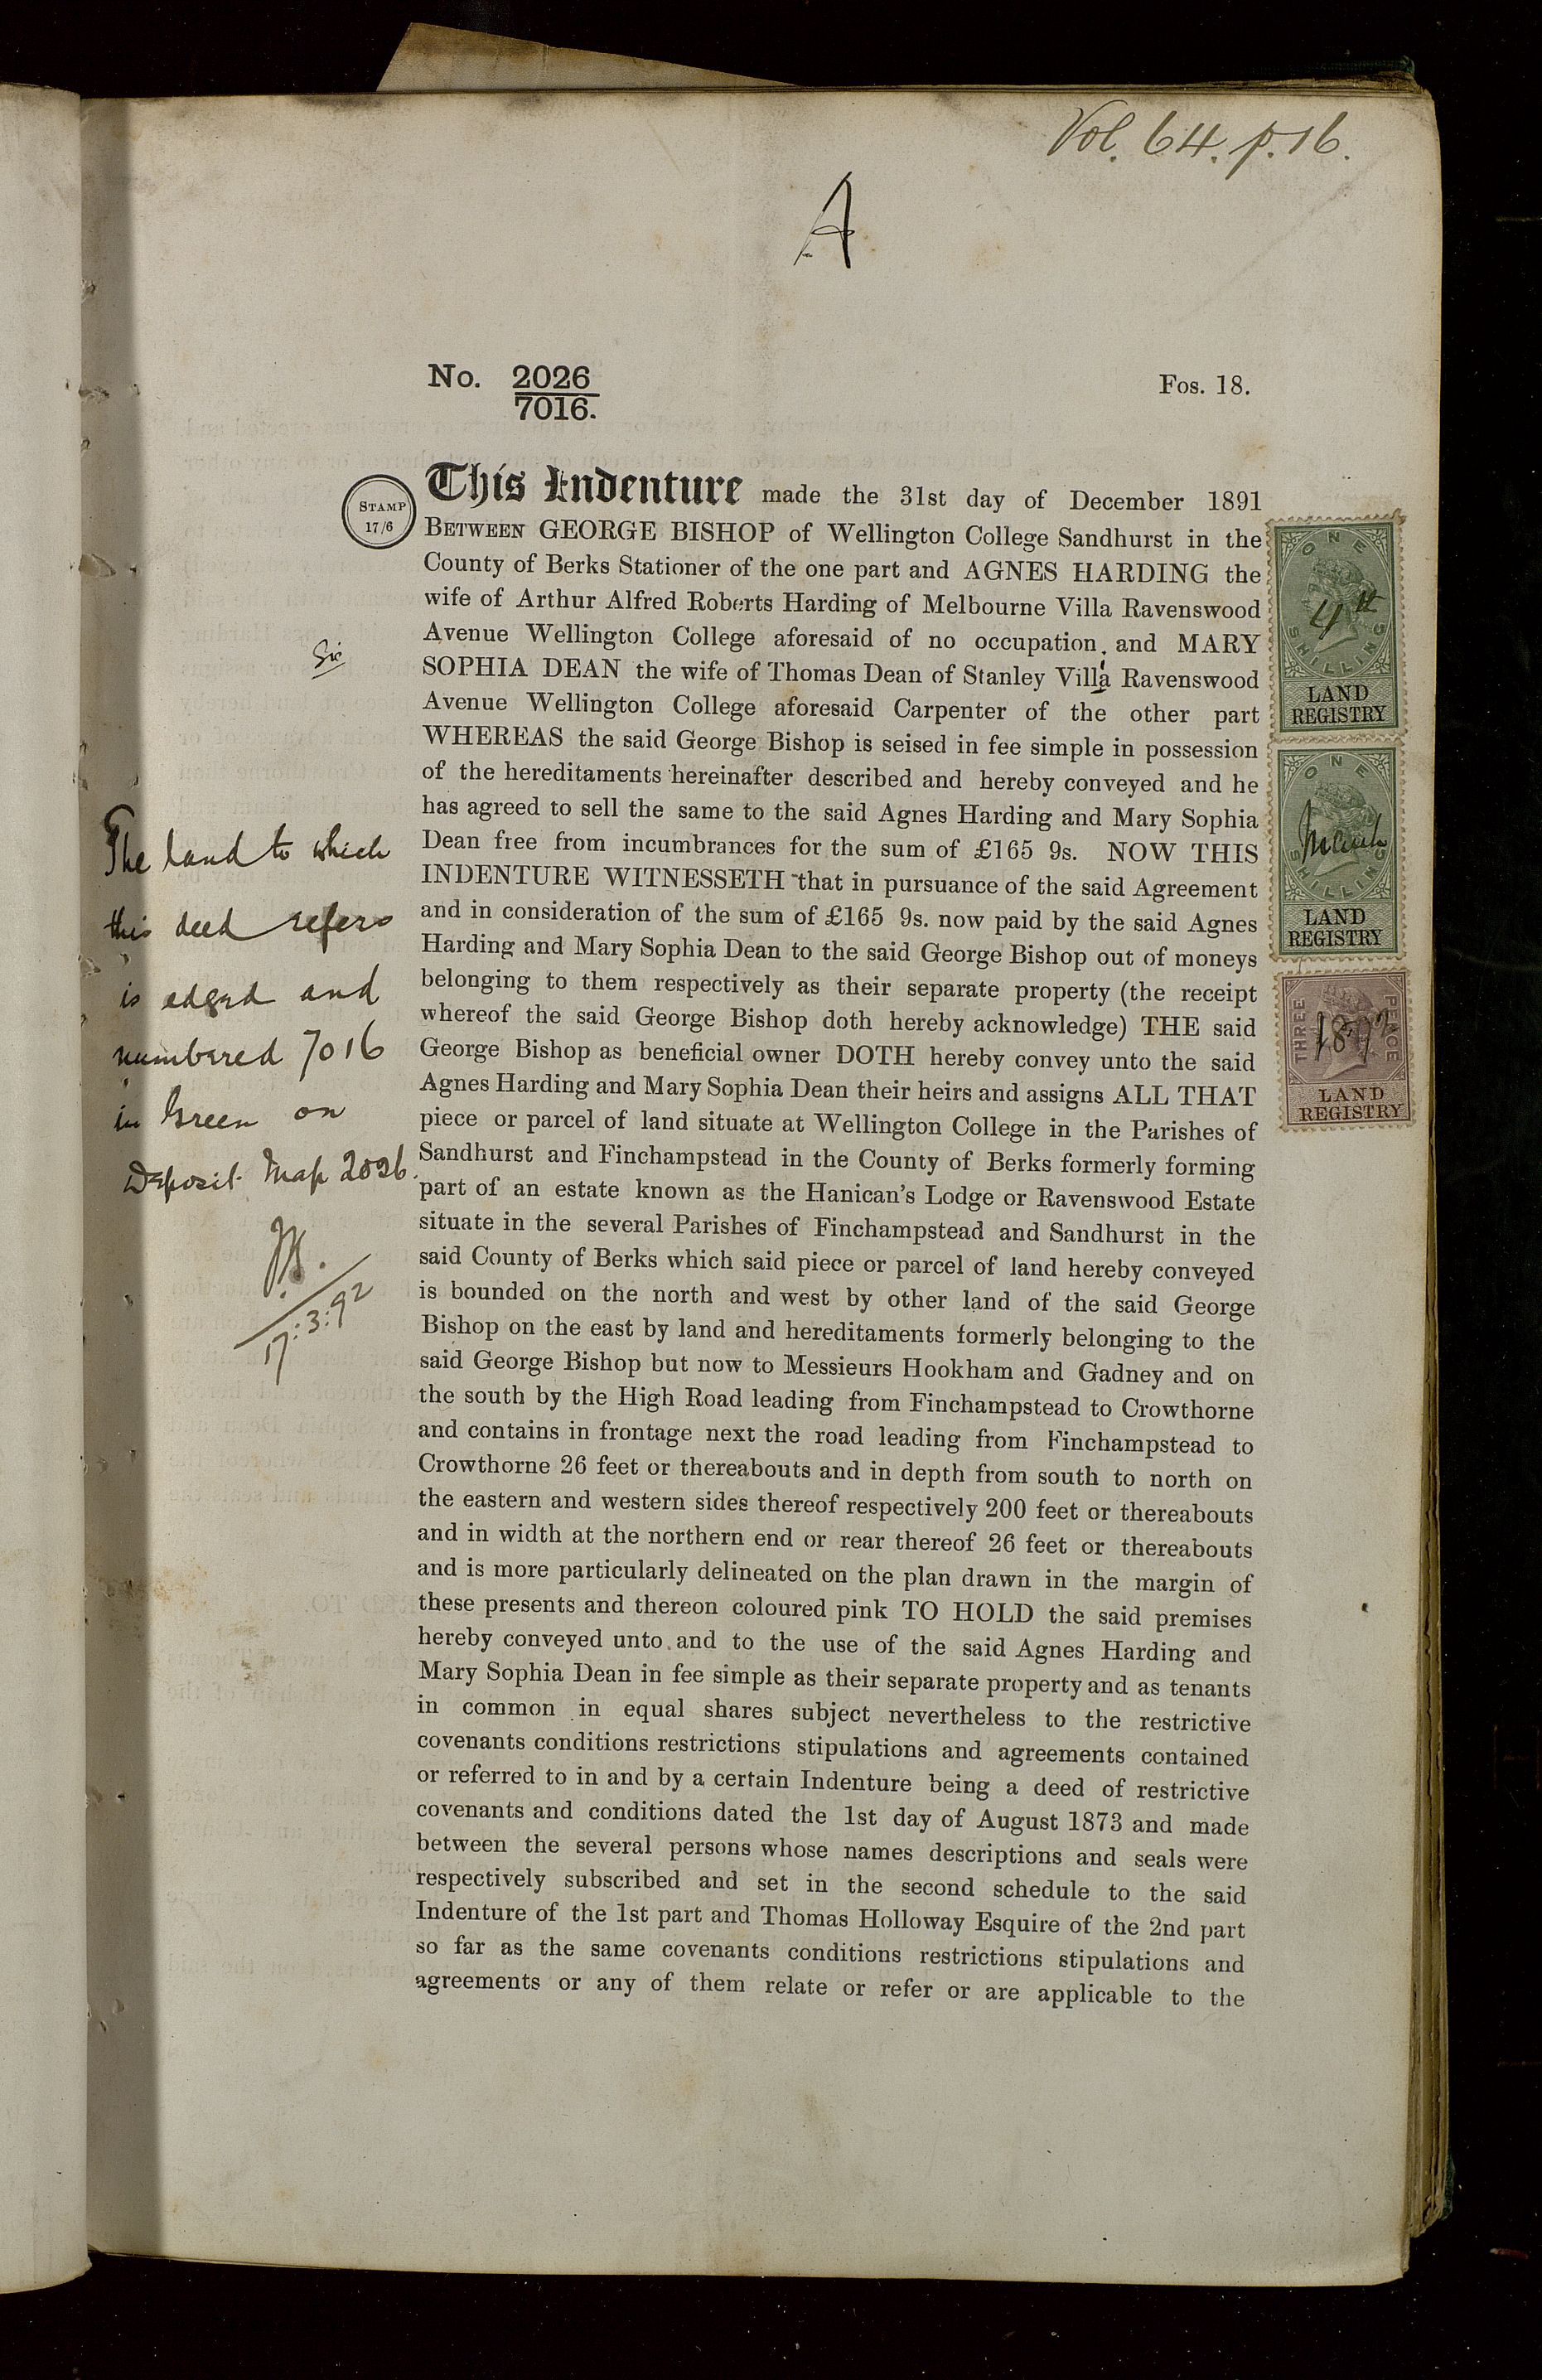 Vol. 64. p. 16.
A
No. 2026
7016.
Fos. 18.
STAMP
17/6
This Indenture made the 31st day of December 1891
BETWEEN GEORGE BISHOP of Wellington College Sandhurst in the
County of Berks Stationer of the one part and AGNES HARDING the
wife of Arthur Alfred Roberts Harding of Melbourne Villa Ravenswood
Avenue Wellington College aforesaid of no occupation, and MARY
SOPHIA DEAN the wife of Thomas Dean of Stanley Villa Ravenswood
Avenue Wellington College aforesaid Carpenter of the other part
WHEREAS the said George Bishop is seised in fee simple in possession
of the hereditaments hereinafter described and hereby conveyed and he
has agreed to sell the same to the said Agnes Harding and Mary Sophia
Dean free from incumbrances for the sum of £165 9s. NOW THIS
INDENTURE WITNESSETH that in pursuance of the said Agreement
and in consideration of the sum of £165 9s. now paid by the said Agnes
Harding and Mary Sophia Dean to the said George Bishop out of moneys
belonging to them respectively as their separate property (the receipt
whereof the said George Bishop doth hereby acknowledge) THE said
George Bishop as beneficial owner DOTH hereby convey unto the said
Agnes Harding and Mary Sophia Dean their heirs and assigns ALL THAT
piece or parcel of land situate at Wellington College in the Parishes of
Sandhurst and Finchampstead in the County of Berks formerly forming
part of an estate known as the Hanican's Lodge or Ravenswood Estate
situate in the several Parishes of Finchampstead and Sandhurst in the
said County of Berks which said piece or parcel of land hereby conveyed
is bounded on the north and west by other land of the said George
Bishop on the east by land and hereditaments formerly belonging to the
said George Bishop but now to Messieurs Hookham and Gadney and on
the south by the High Road leading from Finchampstead to Crowthorne
and contains in frontage next the road leading from Finchampstead to
Crowthorne 26 feet or thereabouts and in depth from south to north on
the eastern and western sides thereof respectively 200 feet or thereabouts
and in width at the northern end or rear thereof 26 feet or thereabouts
and is more particularly delineated on the plan drawn in the margin of
these presents and thereon coloured pink TO HOLD the said premises
hereby conveyed unto and to the use of the said Agnes Harding and
Mary Sophia Dean in fee simple as their separate property and as tenants
in common in equal shares subject nevertheless to the restrictive
covenants conditions restrictions stipulations and agreements contained
or referred to in and by a certain Indenture being a deed of restrictive
covenants and conditions dated the 1st day of August 1873 and made
between the several persons whose names descriptions and seals were
respectively subscribed and set in the second schedule to the said
Indenture of the 1st part and Thomas Holloway Esquire of the 2nd part
so far as the same covenants conditions restrictions stipulations and
agreements or any of them relate or refer or are applicable to the
Sic
The land to which
this deed refers
is edged and
numbered 7016
in Green on
Deposit Map 2026.
17:3:92
ONE
SHILLING
4th
LAND
REGISTRY
ONE
SHILLING
March
LAND
REGISTRY
THREE
PENCE
1892
LAND
REGISTRY